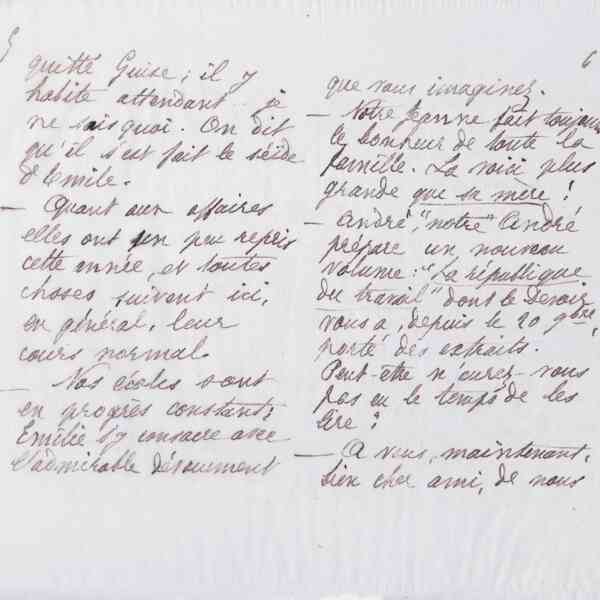 5
quitté Guise ; il y
habite attendant je
ne sais quoi. On dit
qu'il s'est fait le séïde
d'Emile.
— Quant aux affaires
elles ont un peu repris
cette année, et toutes
choses suivent ici,
en général, leur
cours normal.
— Nos écoles sont
en progrès constant ;
Emilie s'y consacre avec
l'admirable dévouement
6
que vous imaginez.
— Notre Jeanne fait toujours
le bonheur de toute la
famille. La voici plus
grande que sa mère !
— André, "notre" André
prépare un nouveau
volume : "La république
du travail" dont le Devoir
vous a, depuis le 20 9bre,
porté des extraits.
Peut-être n'aurez-vous
pas eu le temps de les
lire ?
— A vous, maintenant,
bien cher ami, de nous